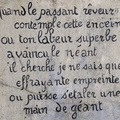 quand le passant rêveur
contemple cette encein
ou ton labeur superbe
a vaincu le néant
il cherche je ne sais que
effrayante empreinte
ou puisse s'étaler une
main de géant